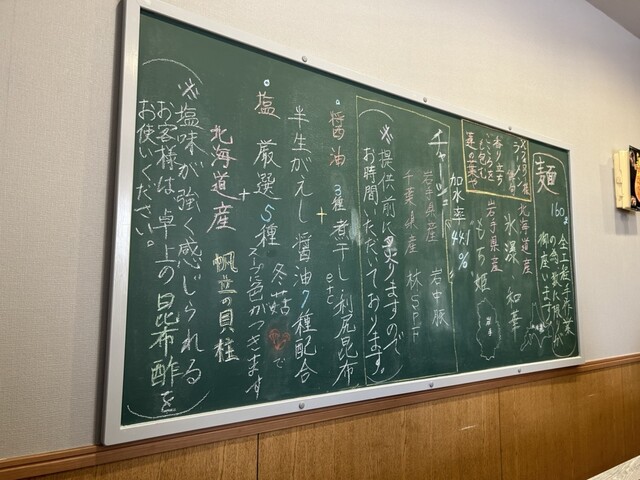 麺 160g
全工程手作業
の為、軟に限り
御座います
北海道産
氷瀑 和華
岩手県産
もち姫
岩手
香り立ち
こころを
包む
蓮の華
加水率
44.1%
チャーシュー
岩手県産 岩中豚
千葉県産 林SPF
(※提供前に炙りますので
お時間いただいております。)
・醤油 3種煮干し、利尻昆布
etc
+
半生がえし醤油7種配合
・塩 厳選5種 冬菇で
スープに色がつきます
+
北海道産 帆立の貝柱
(※塩味が強く感じられる
お客様は、卓上の昆布酢を
お使いください。)